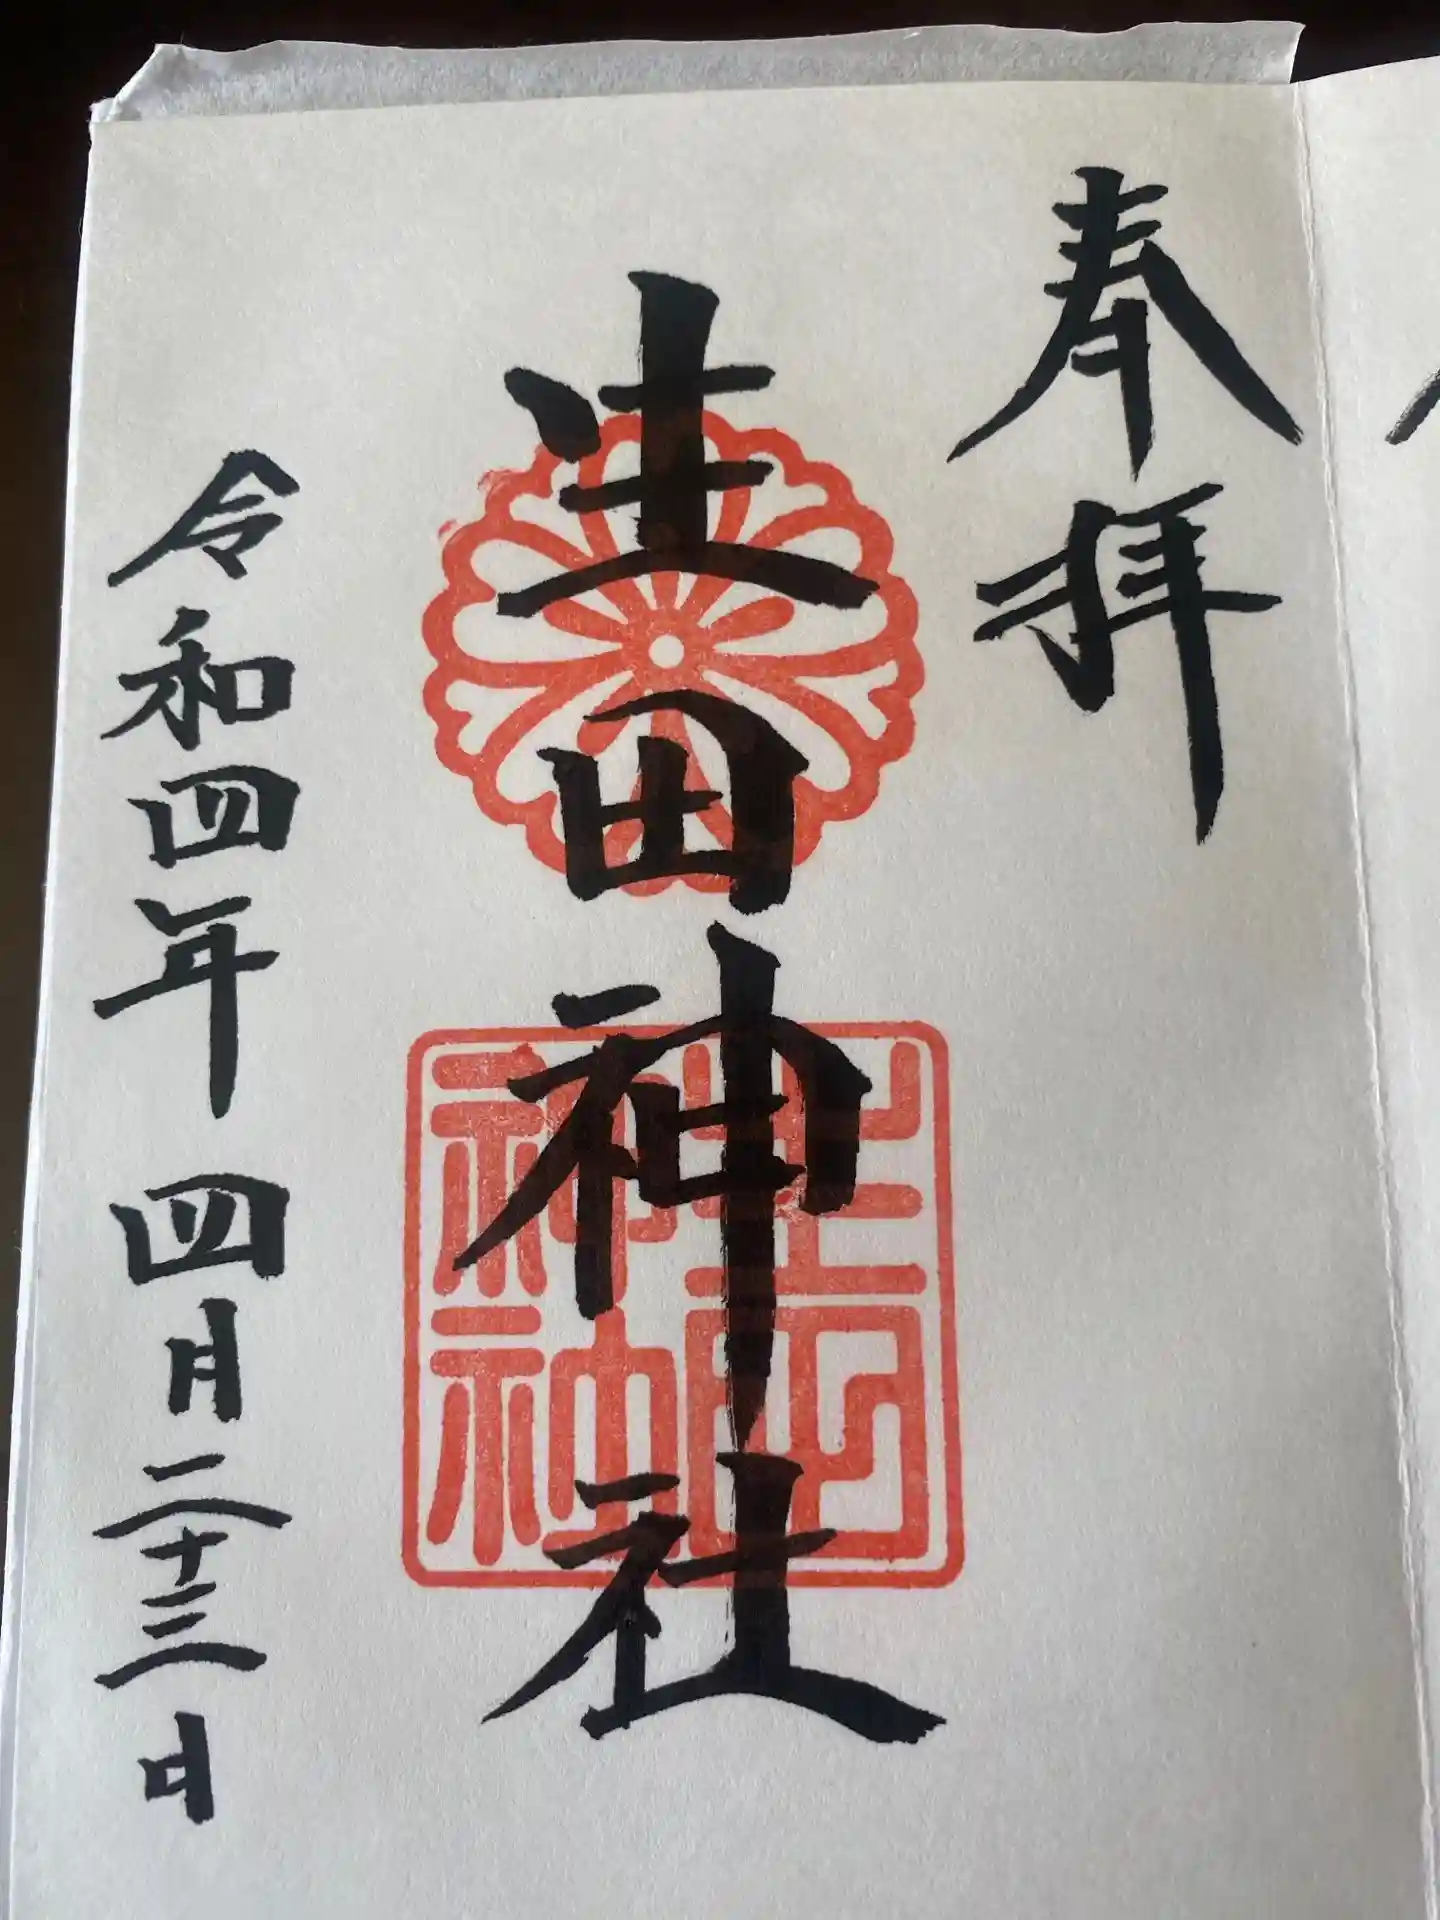 奉拝
生田神社
生田
神社
令和四年 四月二十三日